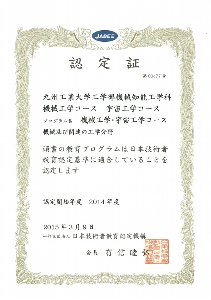 JABEE
認定証
九州工業大学工学部機械知能工学科
機械工学コース 宇宙工学コース
プログラム名 機械工学・宇宙工学コース
機械及び関連の工学分野
頭書の教育プログラムは日本技術者
教育認定基準に適合していることを
認定します
認定開始年度 2014年度
2015年3月9日
一般社団法人 日本技術者教育認定機構
会長 有信睦弘